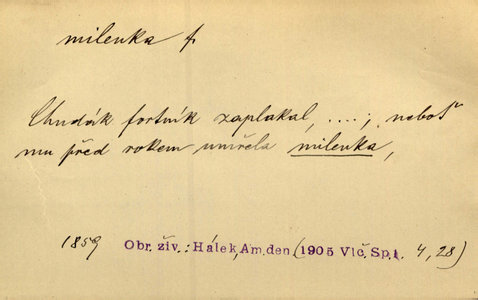 milenka f.
Chudák fortník zaplakal, ....; neboť
mu před rokem umřela milenka,
1859 Obr. živ.: Hálek, Am. den (1905 Vlč. Sp. 4, 28)